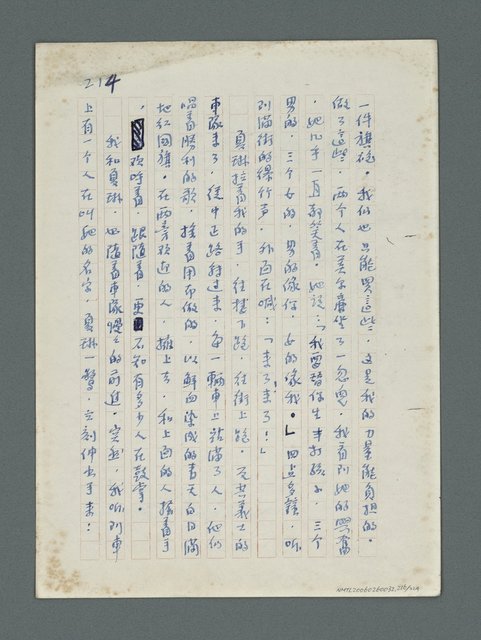 214
一件旗袍。我們也只能買這些,這是我的力量能負担的。
做了這些,兩个人在美尔廬坐了一忽兒,我看到她的興奮
,她几乎一直都笑着。她說:「我要替你生半打孩子,三个
男的,三个女的,男的像你,女的像我。」回上多鐘,听
到滿街的爆竹声,外面在喊:「來了,來了!」
夏琳拉着我的手,往樓下跑,往街上跑。反共義士的
車隊來了,從中正路轉过來,每一輛車上站滿了人,他們
唱着勝利的歌,揮着用布做的,以鮮血染成的青天白日滿
地紅國旗。在兩旁欢迎的人,擁上去,和上面的人揮着手
,欢呼着,跟隨着,更不知有多少人在鼓掌。
我和夏琳,也隨着車隊慢慢的前進。突然,我听到車
上有一个人在叫她的名字,夏琳一驚,立刻伸出手來!
NMTL20060260092, 218/